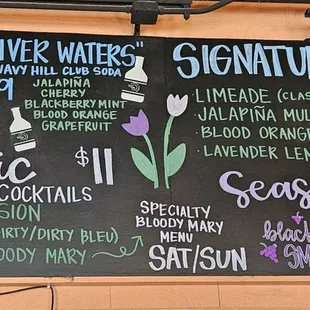 IVER WATERS"
WAVY HILL CLUB SODA
9
JALAPIÑA
CHERRY
BLACKBERRY MINT
BLOOD ORANGE
GRAPEFRUIT
IC $11
COCKTAILS
SION
DIRTY/DIRTY BLEU)
OODY MARY
SPECIALTY
BLOODY MARY
MENU
SAT/SUN
SIGNATU
LIMEADE (CLAS
JALAPIÑA MUL
BLOOD ORANGE
LAVENDER LEM
Seas
black
SM